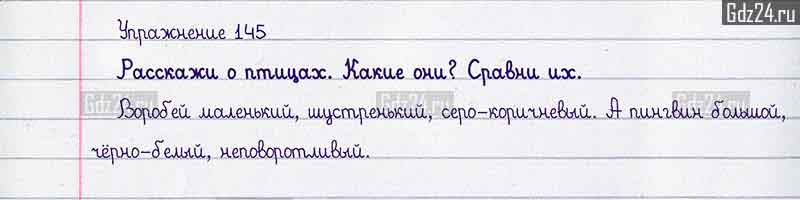 Gdz24.ru
Упражнение 145
Расскажи о птицах. Какие они? Сравни их.
Gdz24.ru Gdz24.ru
Воробей маленький, шустренький, серо-коричневый. А пингвин большой,
чёрно-белый, неповоротливый.